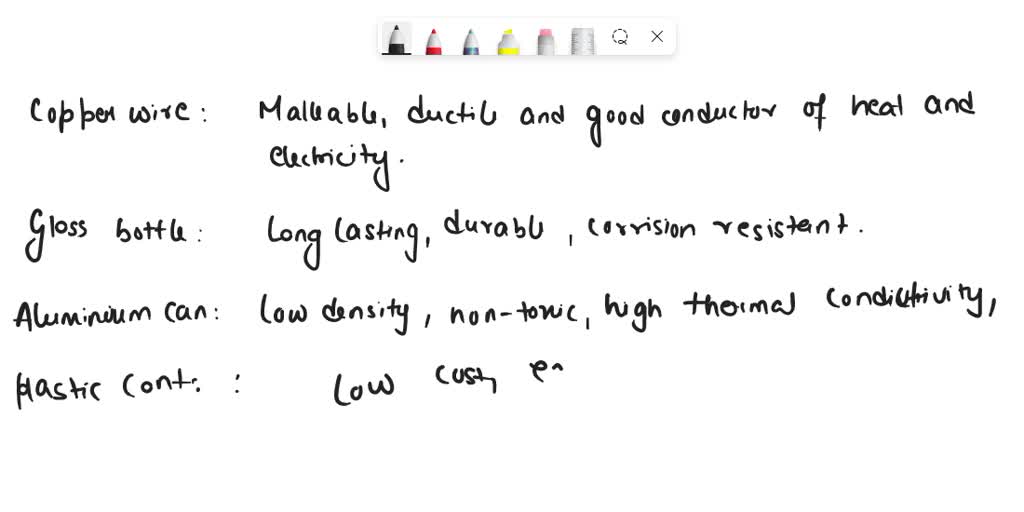 Copper wire: Malleable, ductile and good conductor of heat and
electricity.
Gloss bottle: Long lasting, durable, corrision resistent.
Aluminium can: Low density, non-toxic, high thermal condictivity,
plastic cont. : Low cost,